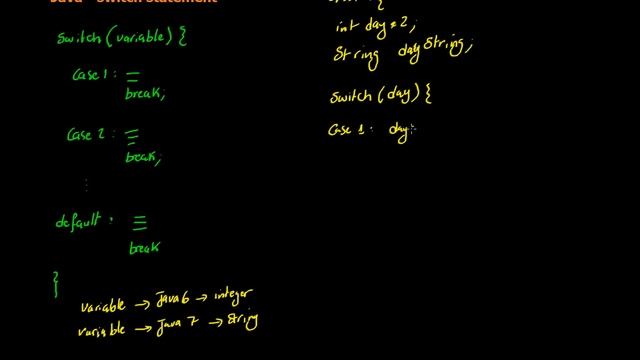 Java - Switch Statement
switch (variable) {
Case 1 :
break;
Case 2 :
break;
default :
break
}
variable → Java 6 → integer
variable → Java 7 → String
{
int day = 2;
String dayString;
switch (day) {
Case 1 : day